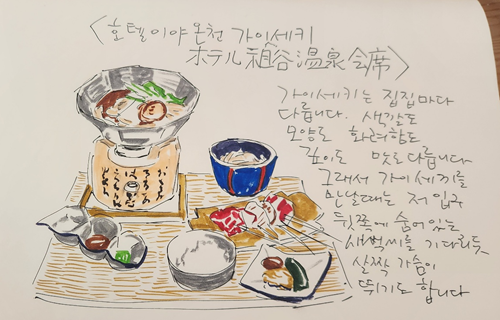 <호텔이야온천 가이세키
ホテル祖谷温泉会席>
가이세키는 집집마다
다릅니다. 색깔도
모양도 화려함도
깊이도 맛도 다릅니다
그래서 가이세끼를
만날때는 저 입구
뒷쪽에 숨어있는
새벽씨를 기다리듯
살짝 가슴이
뛰기도 합니다